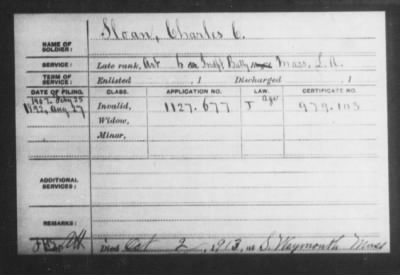 Sloan, Charles C.
NAME OF SOLDIER:
SERVICE: Late rank, Art 6 Indpt Batty Mass. L.A.
TERM OF SERVICE: Enlisted , 1 Discharged , 1
DATE OF FILING. CLASS. APPLICATION NO. LAW. CERTIFICATE NO.
1907. Feby 25
1892, Aug 27 Invalid, 1127.677
Widow,
Minor,
ADDITIONAL SERVICES:
REMARKS:
Died Oct 2, 1913, at S. Weymouth Mass